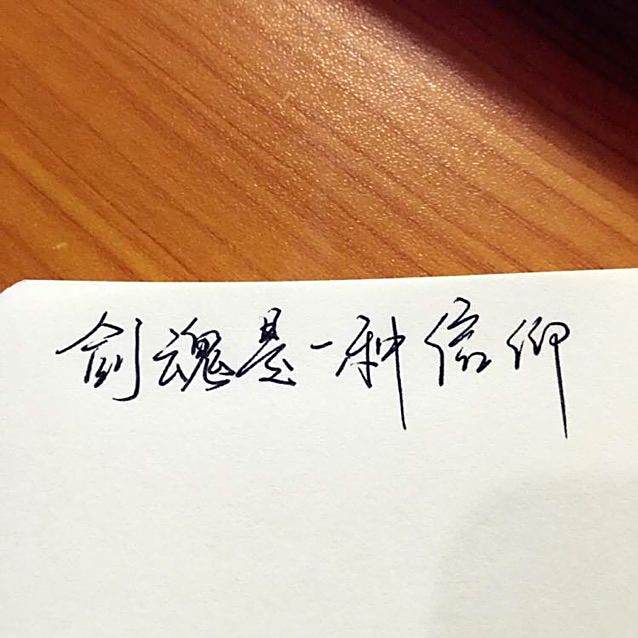 剑魂是一种信仰